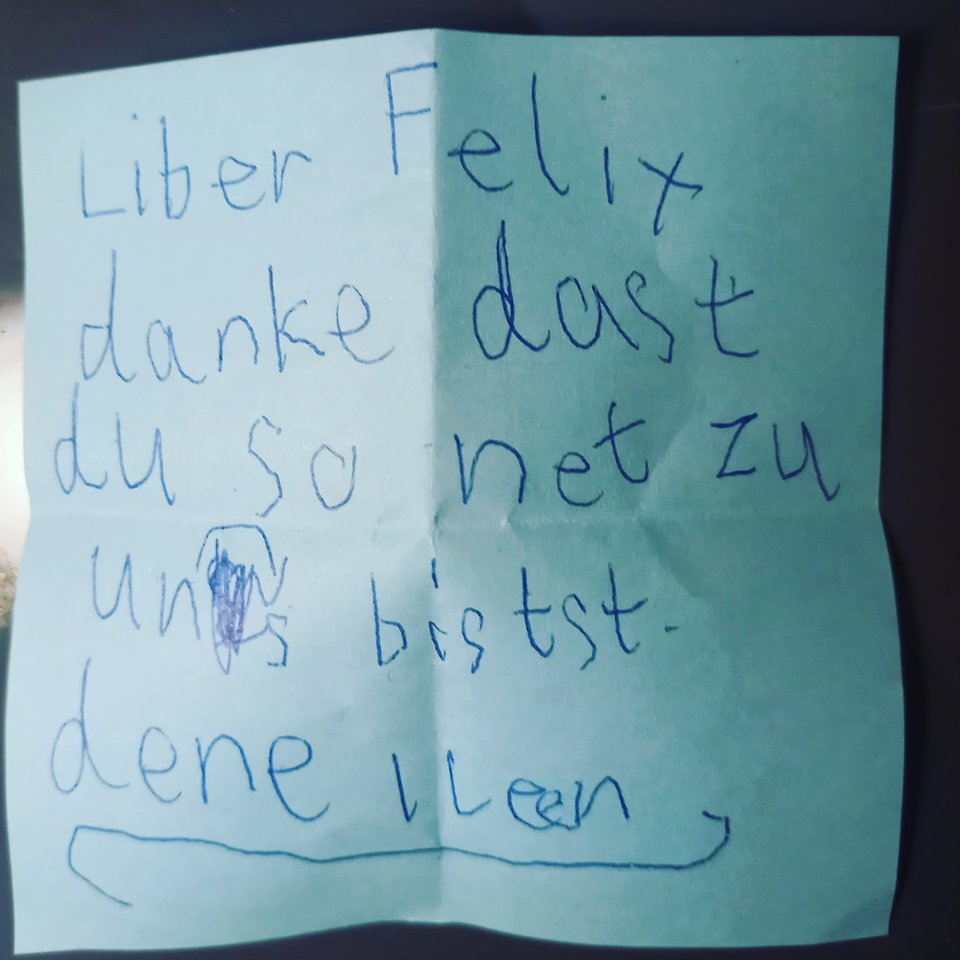 Liber Felix
danke dast
du so net zu
uns bistst.
dene ILeen